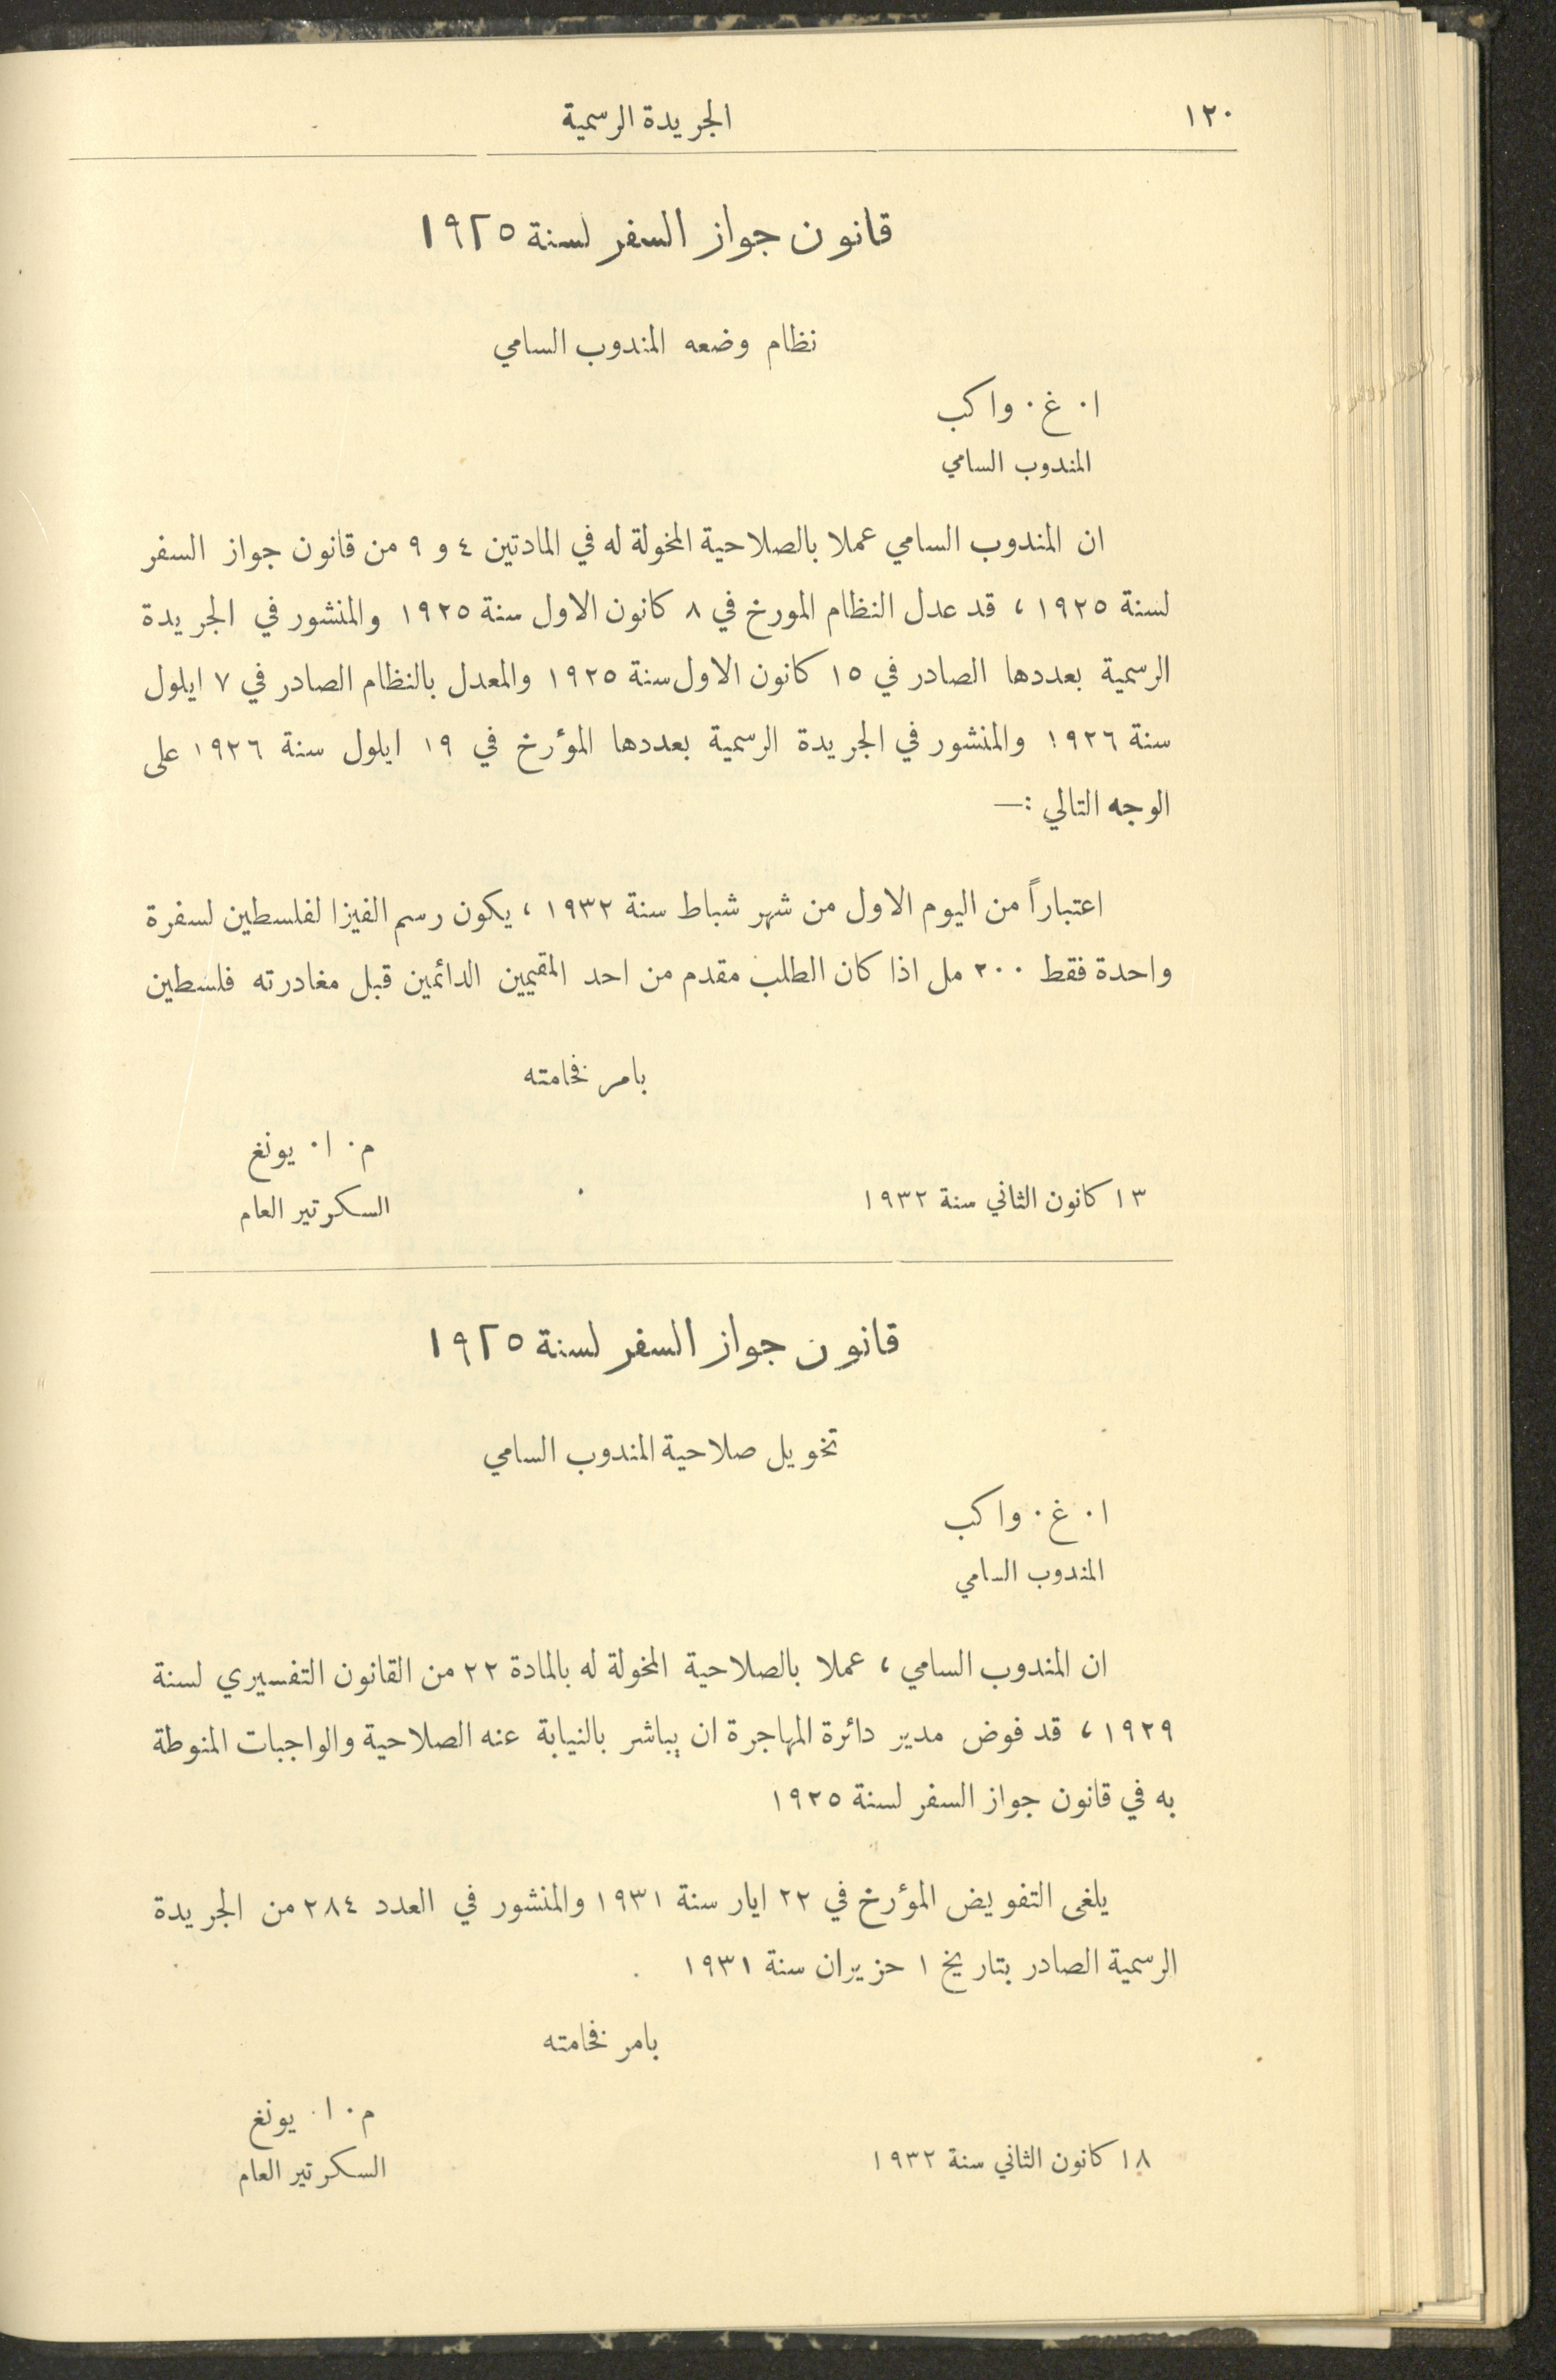 ١٢٠
الجريدة الرسمية
قانون جواز السفر لسنة ١٩٢٥
نظام وضعه المندوب السامي
ا٠ غ٠ واكب
المندوب السامي
ان المندوب السامي عملا بالصلاحية المخولة له في المادتين ٤ و ٩ من قانون جواز السفر
لسنة ١٩٢٥ ، قد عدل النظام المورخ في ٨ كانون الاول سنة ١٩٢٥ والمنشور في الجريدة
الرسمية بعددها الصادر في ١٥ كانون الاول سنة ١٩٢٥ والمعدل بالنظام الصادر في ٧ ايلول
سنة ١٩٢٦ والمنشور في الجريدة الرسمية بعددها المؤرخ في ١٩ ايلول سنة ١٩٢٦ على
الوجه التالي :—
اعتباراً من اليوم الاول من شهر شباط سنة ١٩٣٢ ، يكون رسم الفيزا لفلسطين لسفرة
واحدة فقط ٢٠٠ مل اذا كان الطلب مقدم من احد المقيمين الدائمين قبل مغادرته فلسطين
بامر فخامته
م٠ ا٠ يونغ
١٣ كانون الثاني سنة ١٩٣٢
السكرتير العام
قانون جواز السفر لسنة ١٩٢٥
تخويل صلاحية المندوب السامي
ا٠ غ٠ واكب
المندوب السامي
ان المندوب السامي ، عملا بالصلاحية المخولة له بالمادة ٢٢ من القانون التفسيري لسنة
١٩٢٩ ، قد فوض مدير دائرة المهاجرة ان يباشر بالنيابة عنه الصلاحية والواجبات المنوطة
به في قانون جواز السفر لسنة ١٩٢٥
يلغى التفويض المؤرخ في ٢٢ ايار سنة ١٩٣١ والمنشور في العدد ٢٨٤ من الجريدة
الرسمية الصادر بتاريخ ١ حزيران سنة ١٩٣١
بامر فخامته
م٠ ا٠ يونغ
١٨ كانون الثاني سنة ١٩٣٢
السكرتير العام